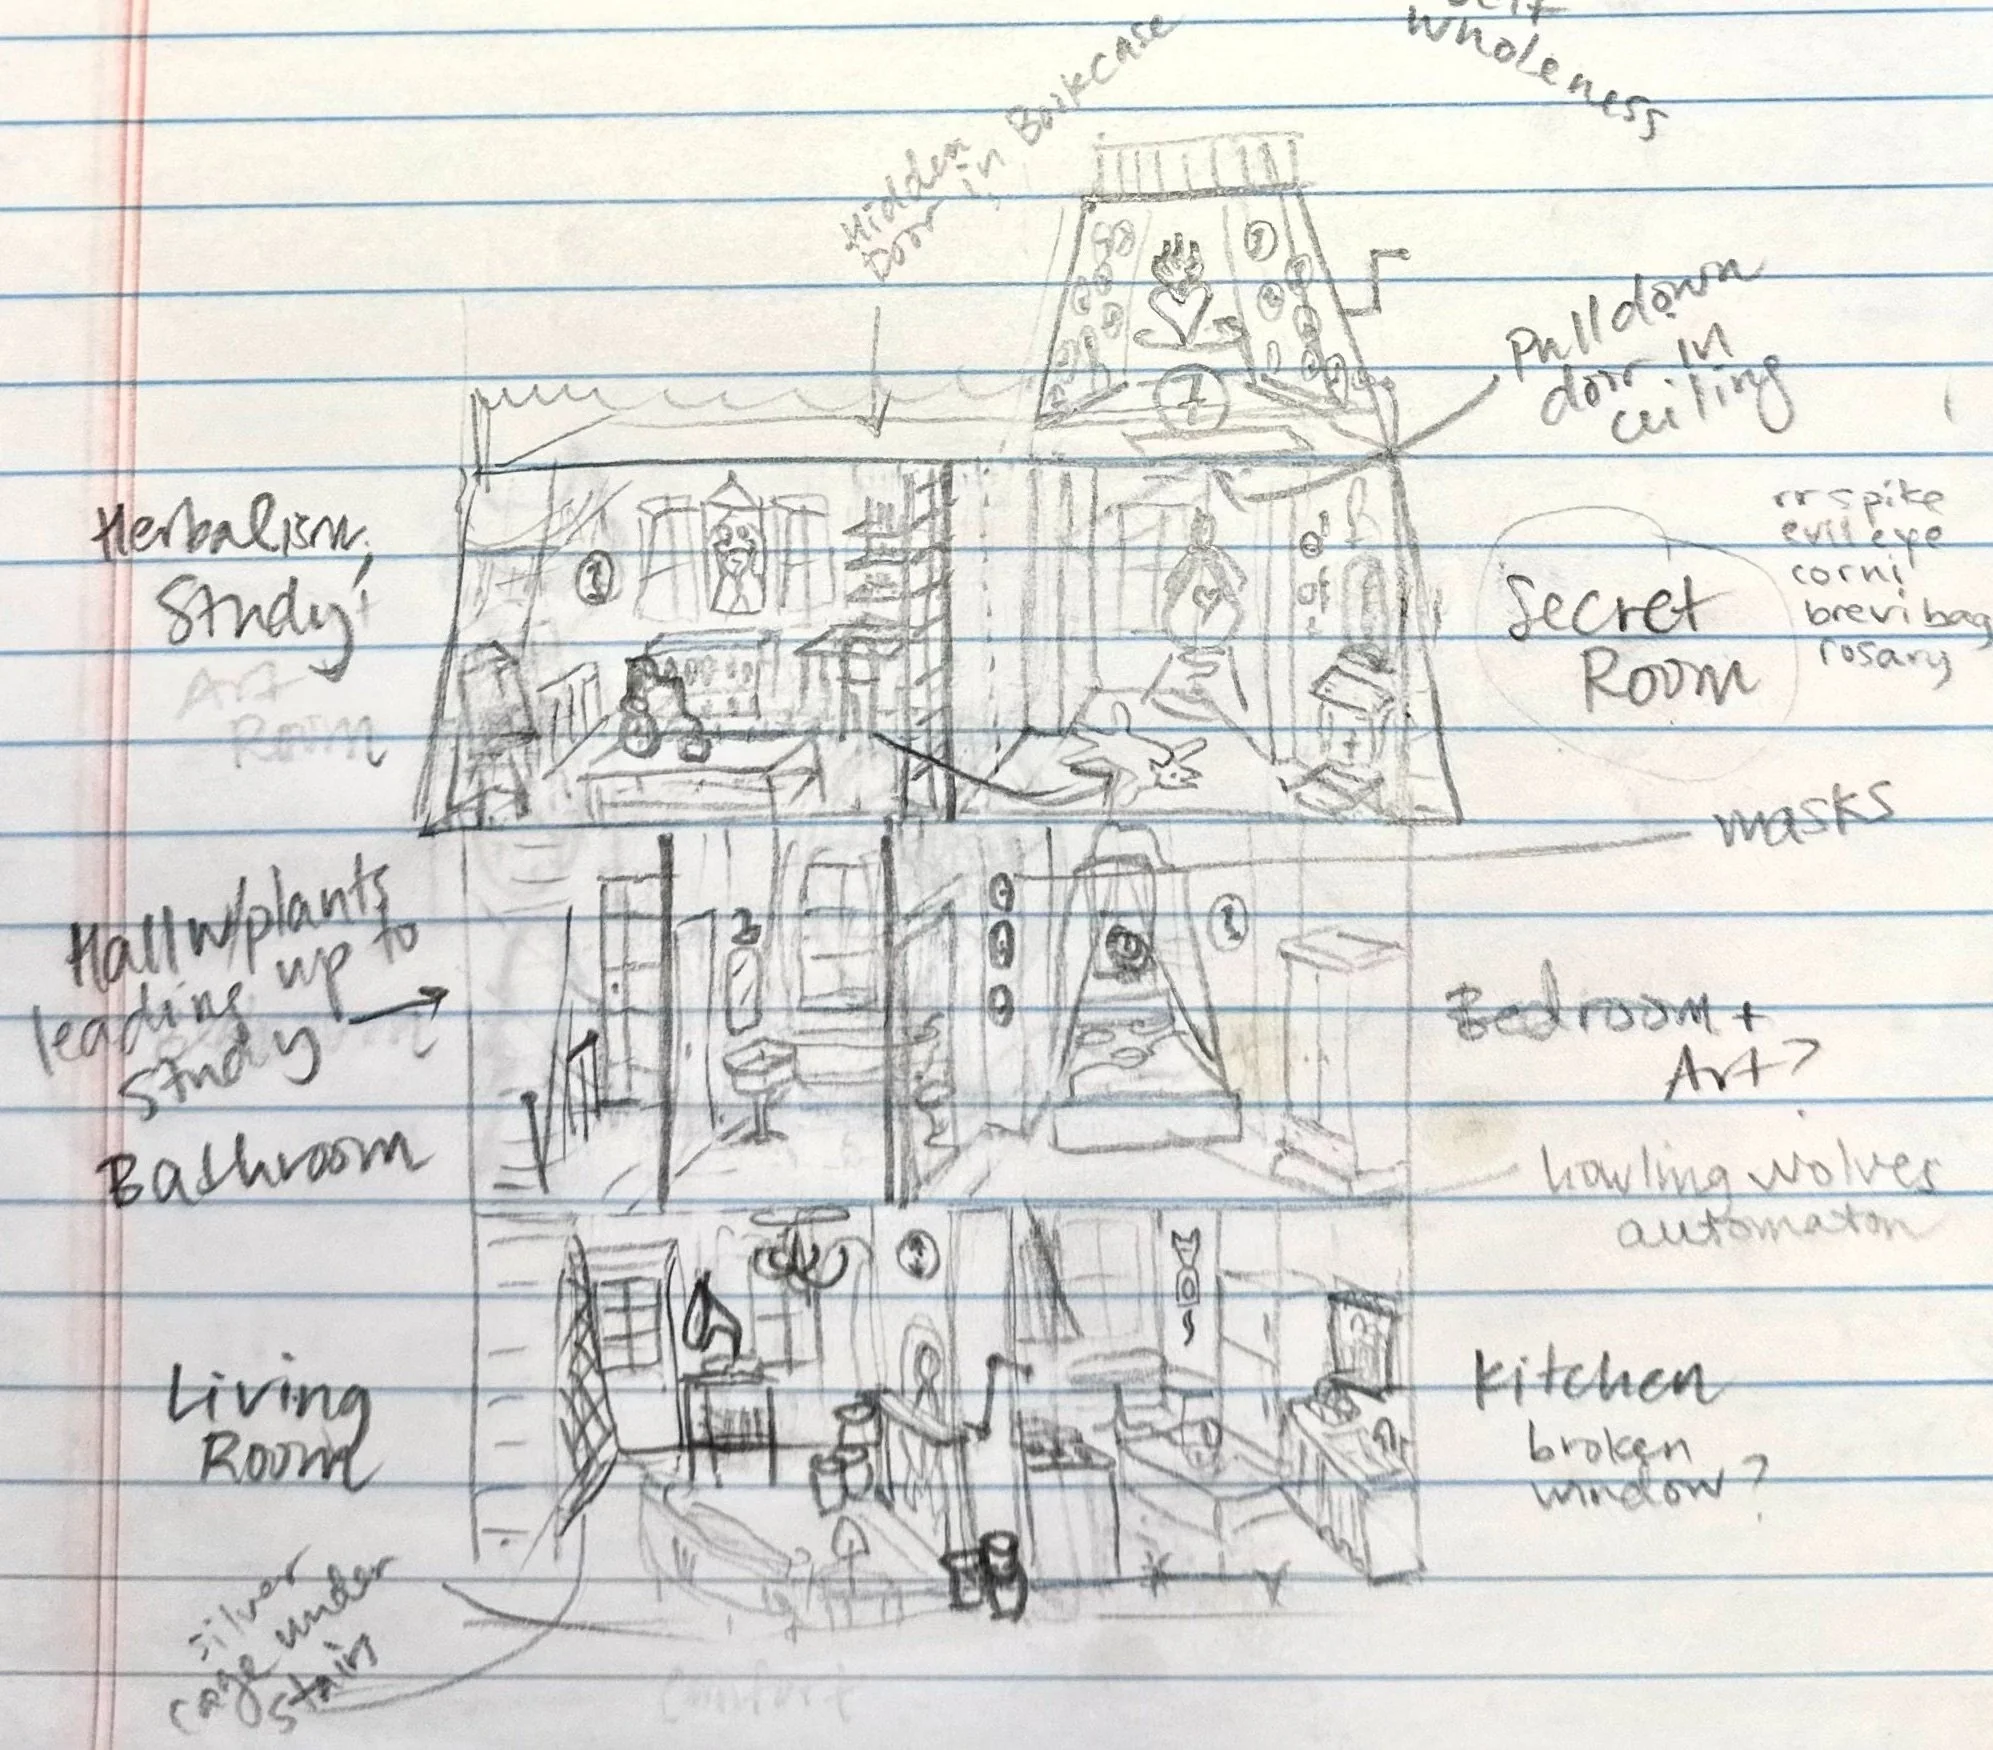 wholeness
Hidden
Door in Bookcase
Pull down
door in
ceiling
Herbalism,
Study,
Art
Room
rr spike
evil eye
corni
brevi bag
rosary
Secret
Room
masks
Hall w/plants
leading up to
Study
Bathroom
Bedroom +
Art?
howling wolves
automaton
Living
Room
Kitchen
broken
window?
silver
cage under
stairs